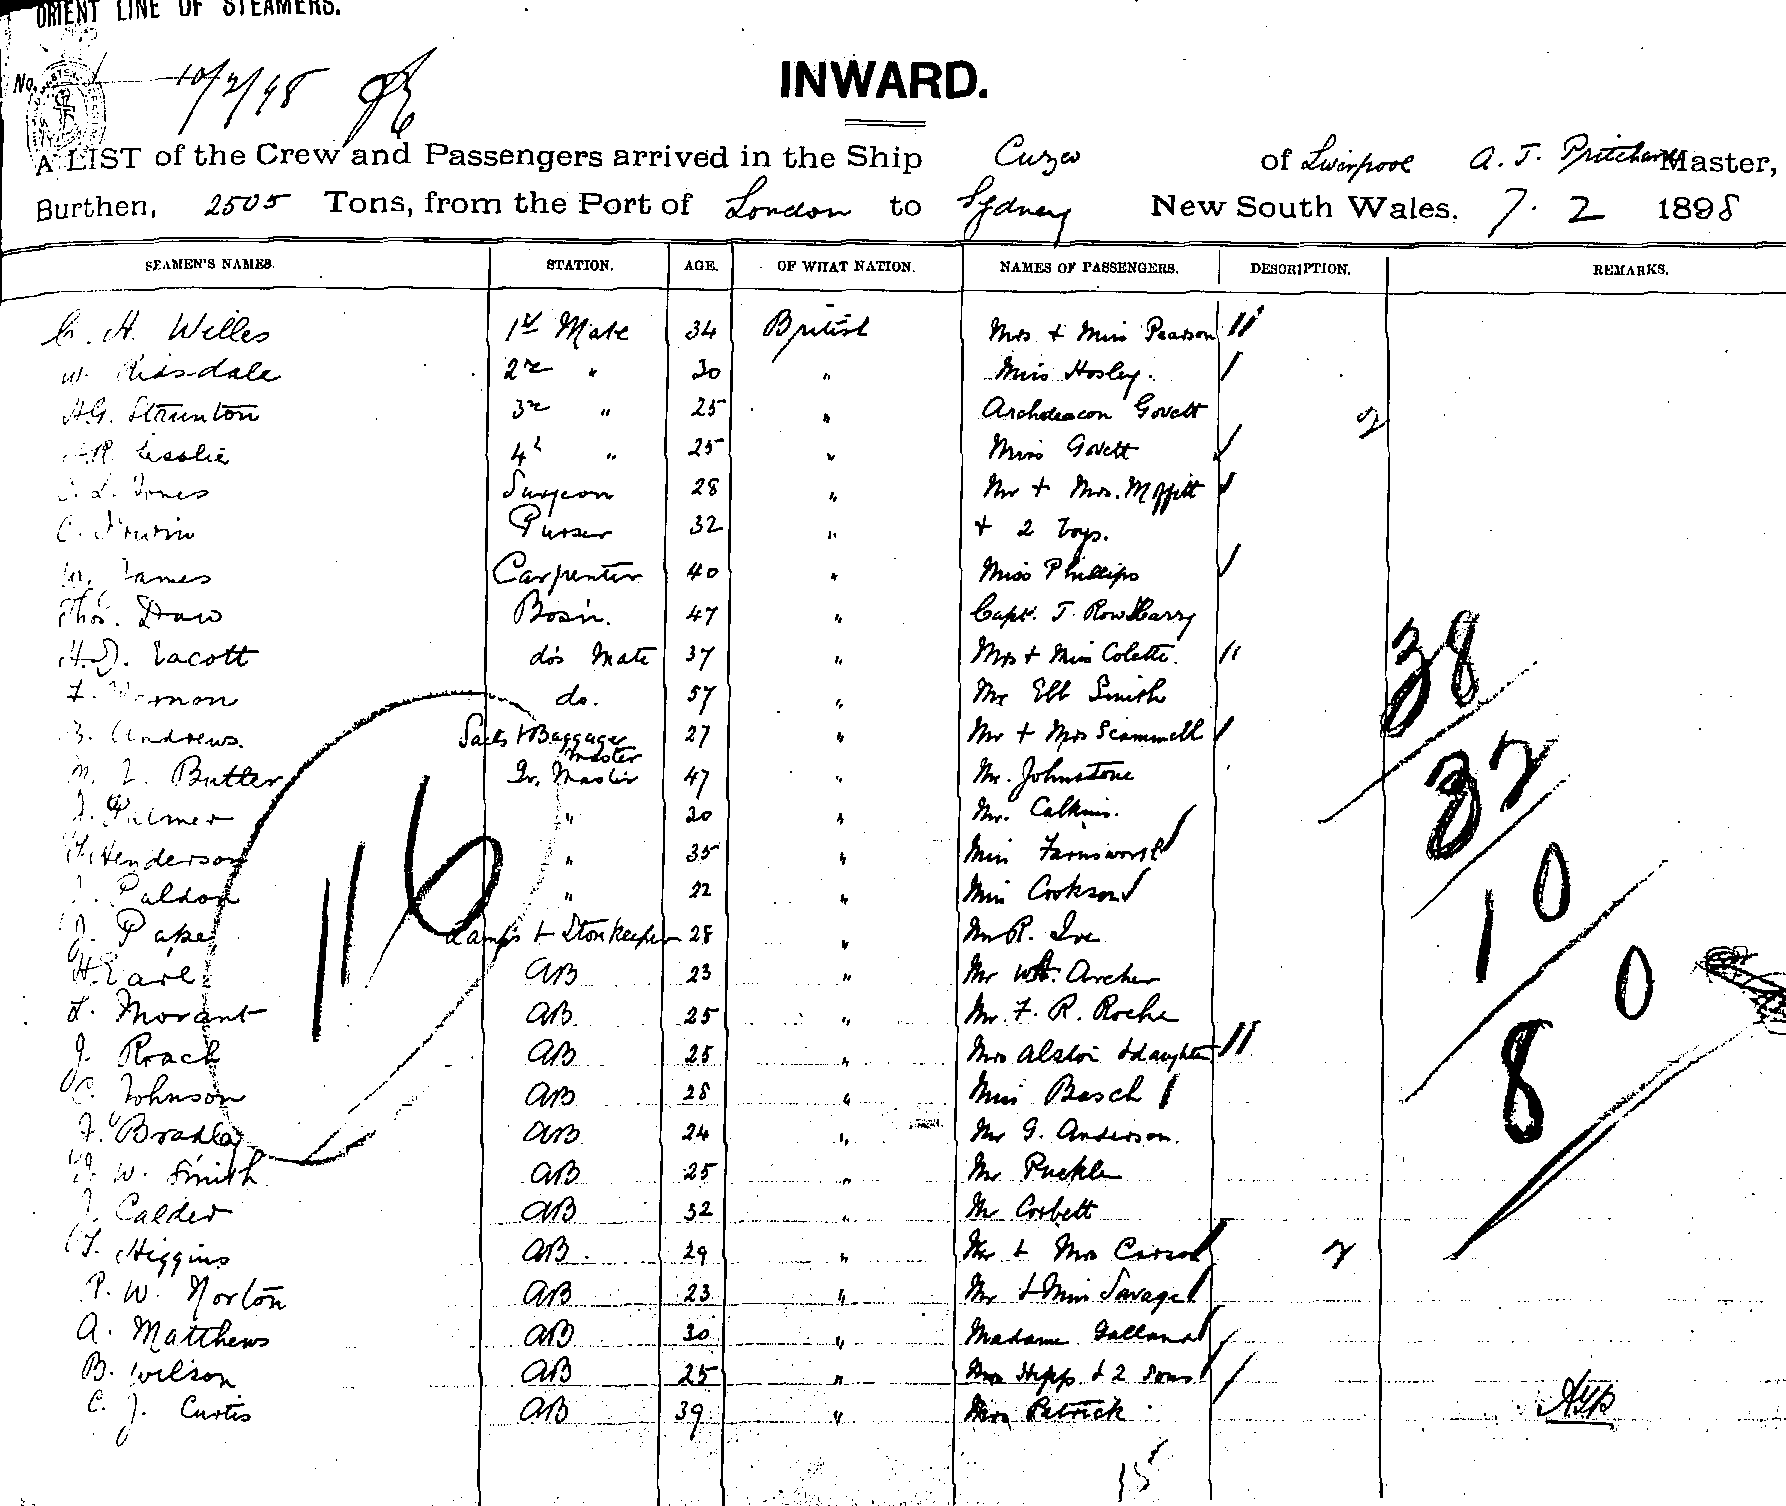 ORIENT LINE OF STEAMERS.
No.
10/2/98
INWARD.
A LIST of the Crew and Passengers arrived in the Ship Cuzco of Liverpool A. J. Pritchard Master,
Burthen, 2505 Tons, from the Port of London to Sydney New South Wales, 7. 2 1898
SEAMEN'S NAMES. STATION. AGE. OF WHAT NATION. NAMES OF PASSENGERS. DESCRIPTION. REMARKS.
C. H. Willes 1st Mate 34 British Mrs + Miss Pearson
W. Ridsdale 2nd " 30 " Miss Hosley.
HG. Staunton 3rd " 25 " Archdeacon Govett 2
A.R. Leslie 4th " 25 " Miss Govett
L. Jones Surgeon 28 " Mr + Mrs. Moffitt
C. Irwin Purser 32 " + 2 boys.
W. James Carpenter 40 " Miss Phillips
Thos. Daw Bosn. 47 " Capt. J. Row Harry
H.D. Yacott do's Mate 37 " Mrs + Miss Colette.
F. Vernon do. 57 " Mr Ebb Smith
B. Andrews. Sails + Baggage Master 27 " Mr + Mrs Scammell
Butler Qr. Master 47 " Mr. Johnstone
J. Palmer " 30 " Mr. Calkins.
Henderson " 35 " Miss Farnsworth
J. Paldon " 22 " Miss Cookson
J. Pape Lamps + Storekeeper 28 " Mr R. Ive
H. Earl AB 23 " Mr Wm. Archer
F. Morant AB 25 " Mr. F. R. Roche
J. Roach AB 25 " Mrs Alston + daughter
C. Johnson AB 28 " Miss Basch
F. Bradley AB 24 " Mr G. Anderson.
W. Smith AB 25 " Mr Puckle
J. Calder AB 32 " Mr Corbett
T. Higgins AB. 29 " Mr + Mrs Carson 2
P. W. Norton AB 23 " Mr + Miss Savage
A. Matthews AB 30 " Madame Galland
B. Wilson AB 25 " Mrs Hipp. + 2 sons
C. J. Curtis AB 39 " Mrs Patrick
116
38
32
10
8 0
15